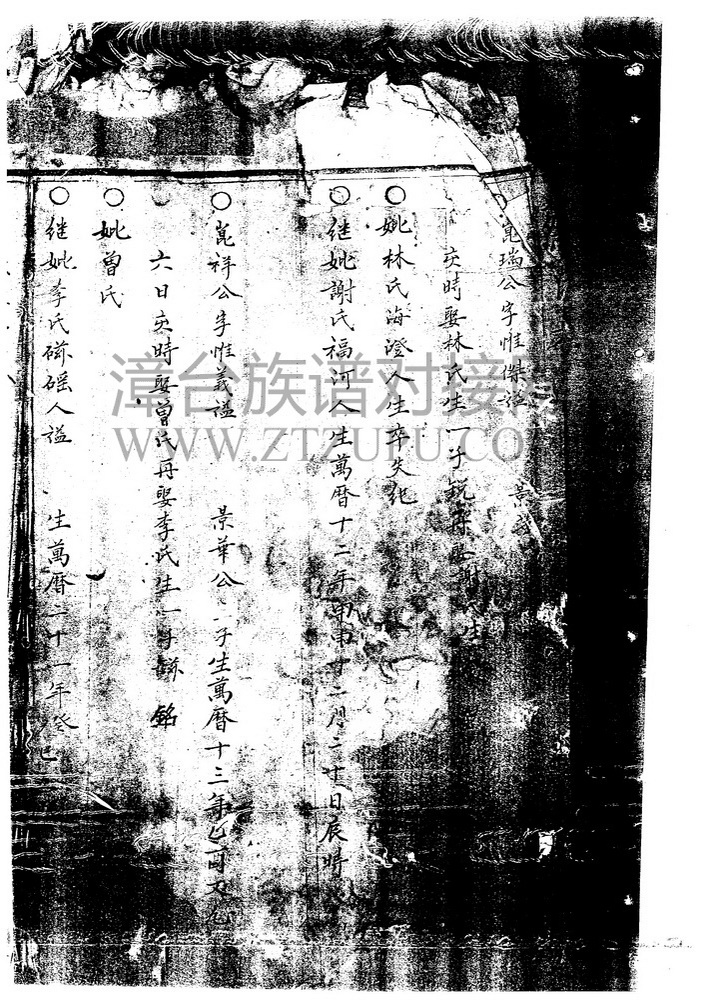 崑瑞公字惟傑謚 景
亥時娶林氏生一子銳再娶謝氏生
妣林氏海澄人生卒失紀
继妣謝氏福河人生萬曆十二年甲申十二月二十日辰時
崑祥公字惟義謚 景華公二子生萬曆十三年乙酉又九
六日亥時娶曾氏再娶李氏生一子 銘
妣曾氏
继妣李氏磁磘人謚 生萬曆二十一年癸巳
漳台族谱对接
WWW.ZTZUPU.COM